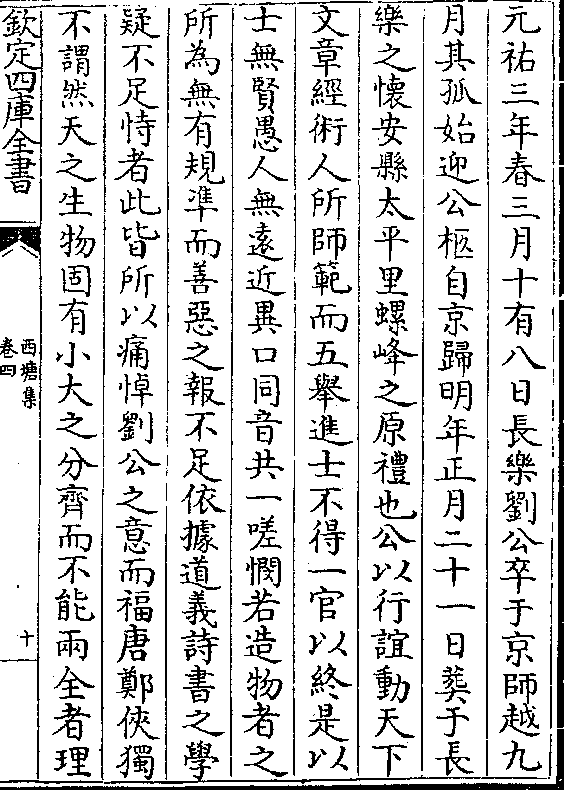 元祐三年春三月十有八日長樂劉公卒于京師越九
月其孤始迎公柩自京歸明年正月二十一日葬于長
樂之懷安縣太平里螺峰之原禮也公以行誼動天下
文章經術人所師範而五舉進士不得一官以終是以
士無賢愚人無遠近異口同音共一嗟憫若造物者之
所為無有規準而善惡之報不足依據道義詩書之學
疑不足恃者此皆所以痛悼劉公之意而福唐鄭俠獨
不謂然天之生物固有小大之分齊而不能兩全者理
欽定四庫全書
西塘集
卷四
十